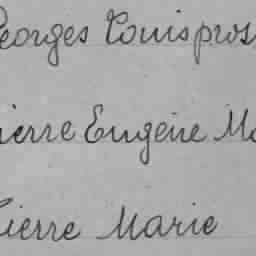 Georges Louis pros
Pierre Eugène Ma
Pierre Marie